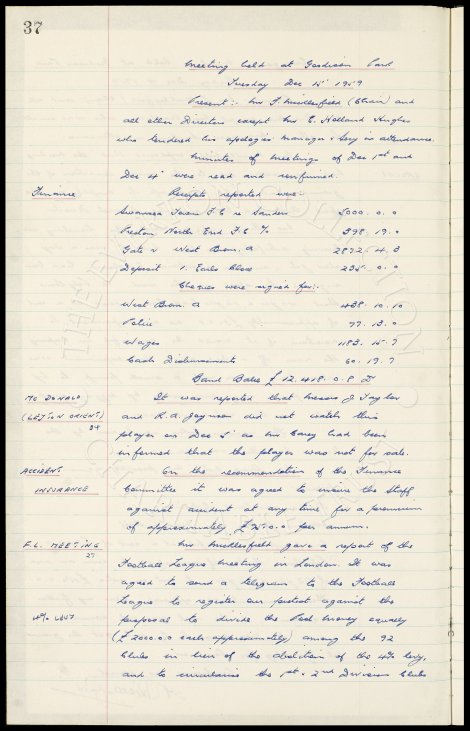 37
Meeting held at Goodison Park
Tuesday Dec 15th 1959
Present:- Mr F. Micklesfield (Chair) and
all other Directors except Mr C. Holland Hughes
who tendered his apologies Manager & Secy in attendance.
Minutes of meetings of Dec 1st and
Dec 4th were read and confirmed.
Finance Receipts reported were:-
Swansea Town F.C re Sanders 5000. 0. 0
Preston North End F.C % 398. 19. 0
Gate v West Brom. A 2892. 4. 3
Deposit 1. Earls Close 235. 0. 0
Cheques were signed for:-
West Brom. A 438. 10. 10
Police 77. 13. 0
Wages 1183. 15. 7
Cash Disbursements 60. 19. 7
Bank Bales £ 12,418. 0. 8 D
Mc DONALD It was reported that Messrs J. Taylor
(LEYTON ORIENT) and R. A. Joynson did not watch this
24 player on Dec 5th as Mr Carey had been
informed that the player was not for sale.
ACCIDENT On the recommendation of the Finance
INSURANCE Committee it was agreed to insure the Staff
against accident at any time for a premium
of approximately £ 75. 0. 0 per annum.
F.L. MEETING Mr Micklesfield gave a report of the
27 Football League meeting in London. It was
agreed to send a telegram to the Football
League to register our protest against the
4% LEVY proposal to divide the Pool money equally
(£ 2000. 0. 0 each approximately) among the 92
Clubs in lieu of the abolition of the 4% levy,
and to circularise the 1st & 2nd Division Clubs